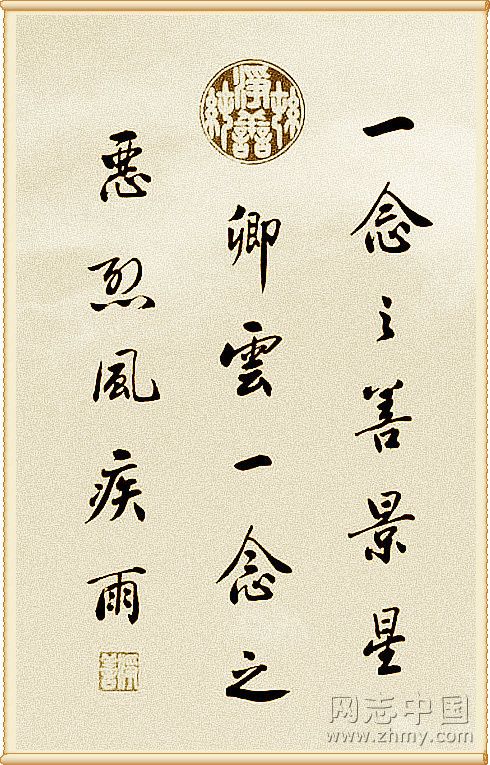 一念之善景星
卿雲一念之
惡烈風疾雨
网志中国
www.zhmy.com